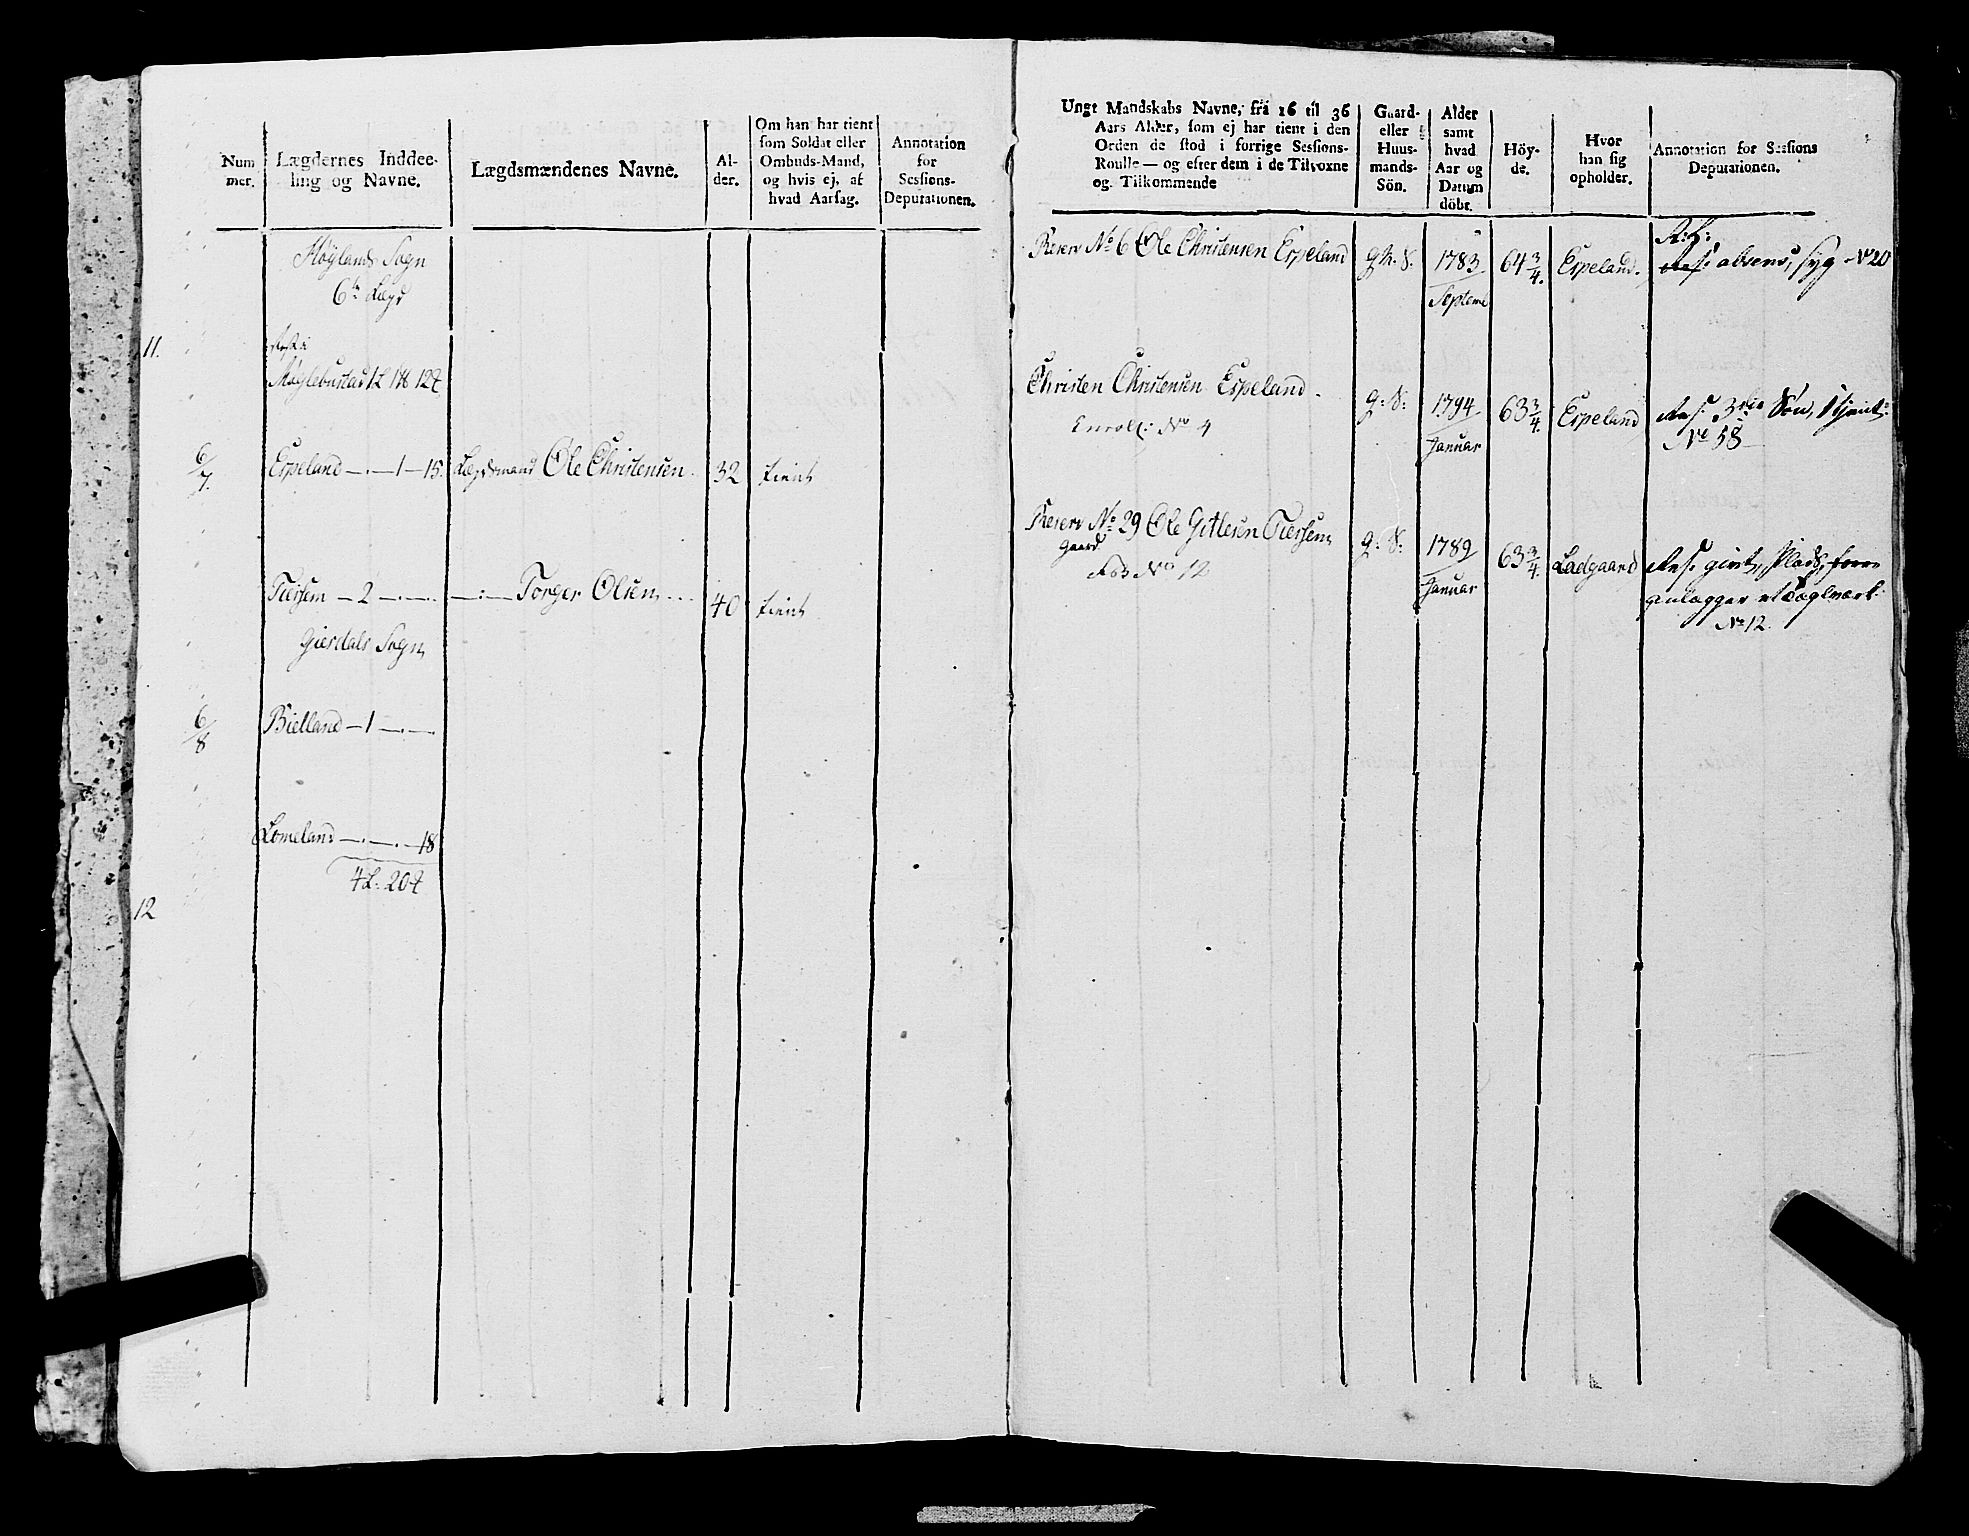 Num
mer.
Lægdernes Inddee-
ling og Navne.
Lægdsmændenes Navne.
Al-
der.
Om han har tient
som Soldat eller
Ombuds-Mand,
og hvis ej, af
hvad Aarsag.
Annotation
for
Sessions-
Deputationen.
Høylands Sogn
6te Lægd
11.
Møglebustad 1
6/7
Espeland — 1 — 15.
Lægdsmand Ole Christensen
32
tient
Tiessem — 2 —
Torger Olsen
40
tient
Giesdals Sogn
6/8
Bielland — 1 —
Lomeland — 18
4 L: 20
12
Ungt Mandskabs Navne, frå 16 til 36
Aars Alder, som ej har tient i den
Orden de stod i forrige Sessions-
Roulle — og efter dem i de Tilvoxne
og Tilkommende
Gaard-
eller
Huus-
mands-
Sön.
Alder
samt
hvad
Aar og
Datum
döbt.
Höy-
de.
Hvor
han sig
opholder.
Annotation for Sessions
Deputationen.
Reserv No 6 Ole Christensen Espeland
1783
Septem
64 3/4.
Espeland.
absens, syg No 20
Christen Christensen Espeland.
Enroll: No 4
g: S:
1794
Januar
63 3/4.
Espeland
Res: 3die Søn, 1 tient:
No 58
Reserv No 29 Ole Gitlesen Tiessem
gaard
No 12
g: S:
1789
Januar
63 3/4.
Ladgaard
Res: givt, Plads,
anlægger et Taglværk:
No 12.